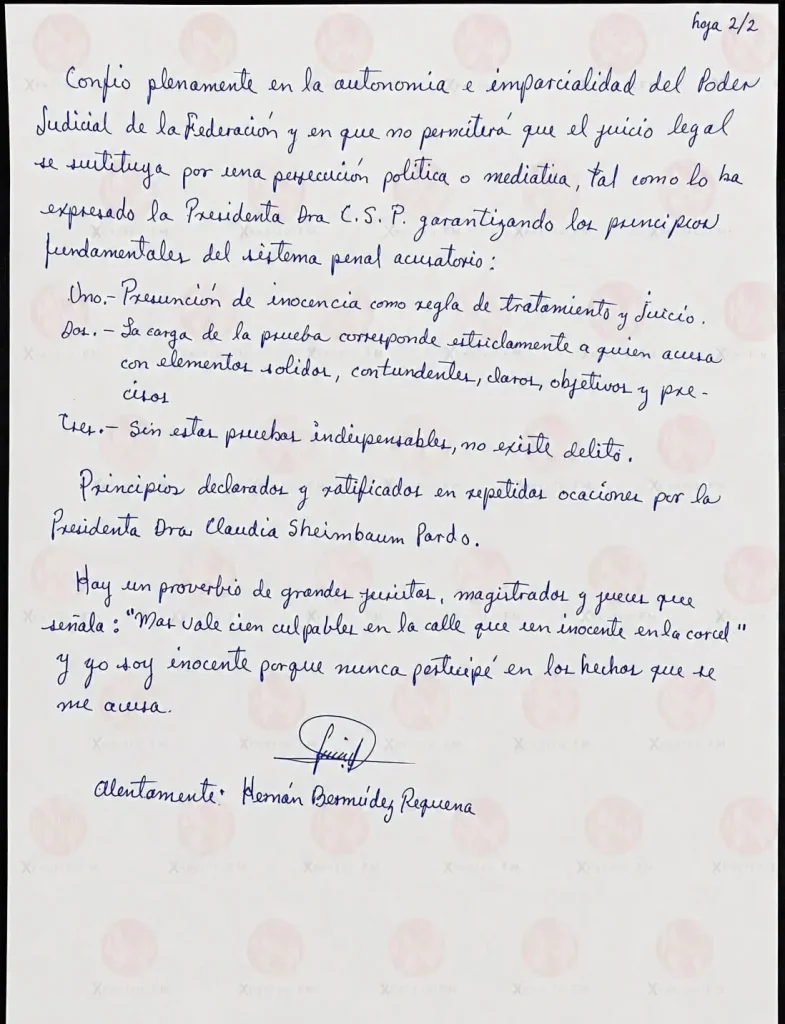 hoja 2/2
Confío plenamente en la autonomía e imparcialidad del Poder
Judicial de la Federación y en que no permitirá que el juicio legal
se sustituya por una persecución política o mediatica, tal como lo ha
expresado la Presidenta Dra C. S. P. garantizando los principios
fundamentales del sistema penal acusatorio:
Uno.- Presunción de inocencia como regla de tratamiento y Juicio.
Dos.- La carga de la prueba corresponde estriclamente a quien acusa
con elementos solidos, contundentes, claros, objetivos y pre-
cisos
Tres.- Sin estas pruebas indispensables, no existe delito.
Principios declarados y ratificados en repetidas ocaciones por la
Presidenta Dra Claudia Sheimbaum Pardo.
Hay un proverbio de grandes juristas, magistrados y jueces que
señala: "Mas vale cien culpables en la calle que un inocente en la carcel"
y yo soy inocente porque nunca participé en los hechos que se
me acusa.
Atentamente: Hernán Bermúdez Requena